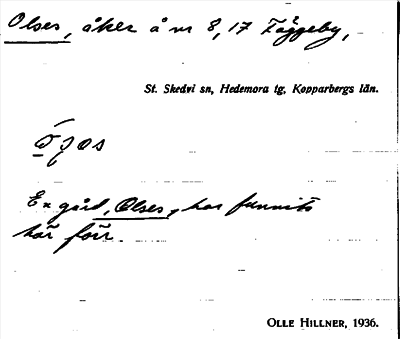 Olses, åker å nr 8, 17 Täggeby,
St. Skedvi sn, Hedemora tg, Kopparbergs län.
En gård, Olses, har funnits
här förr.
OLLE HILLNER, 1936.